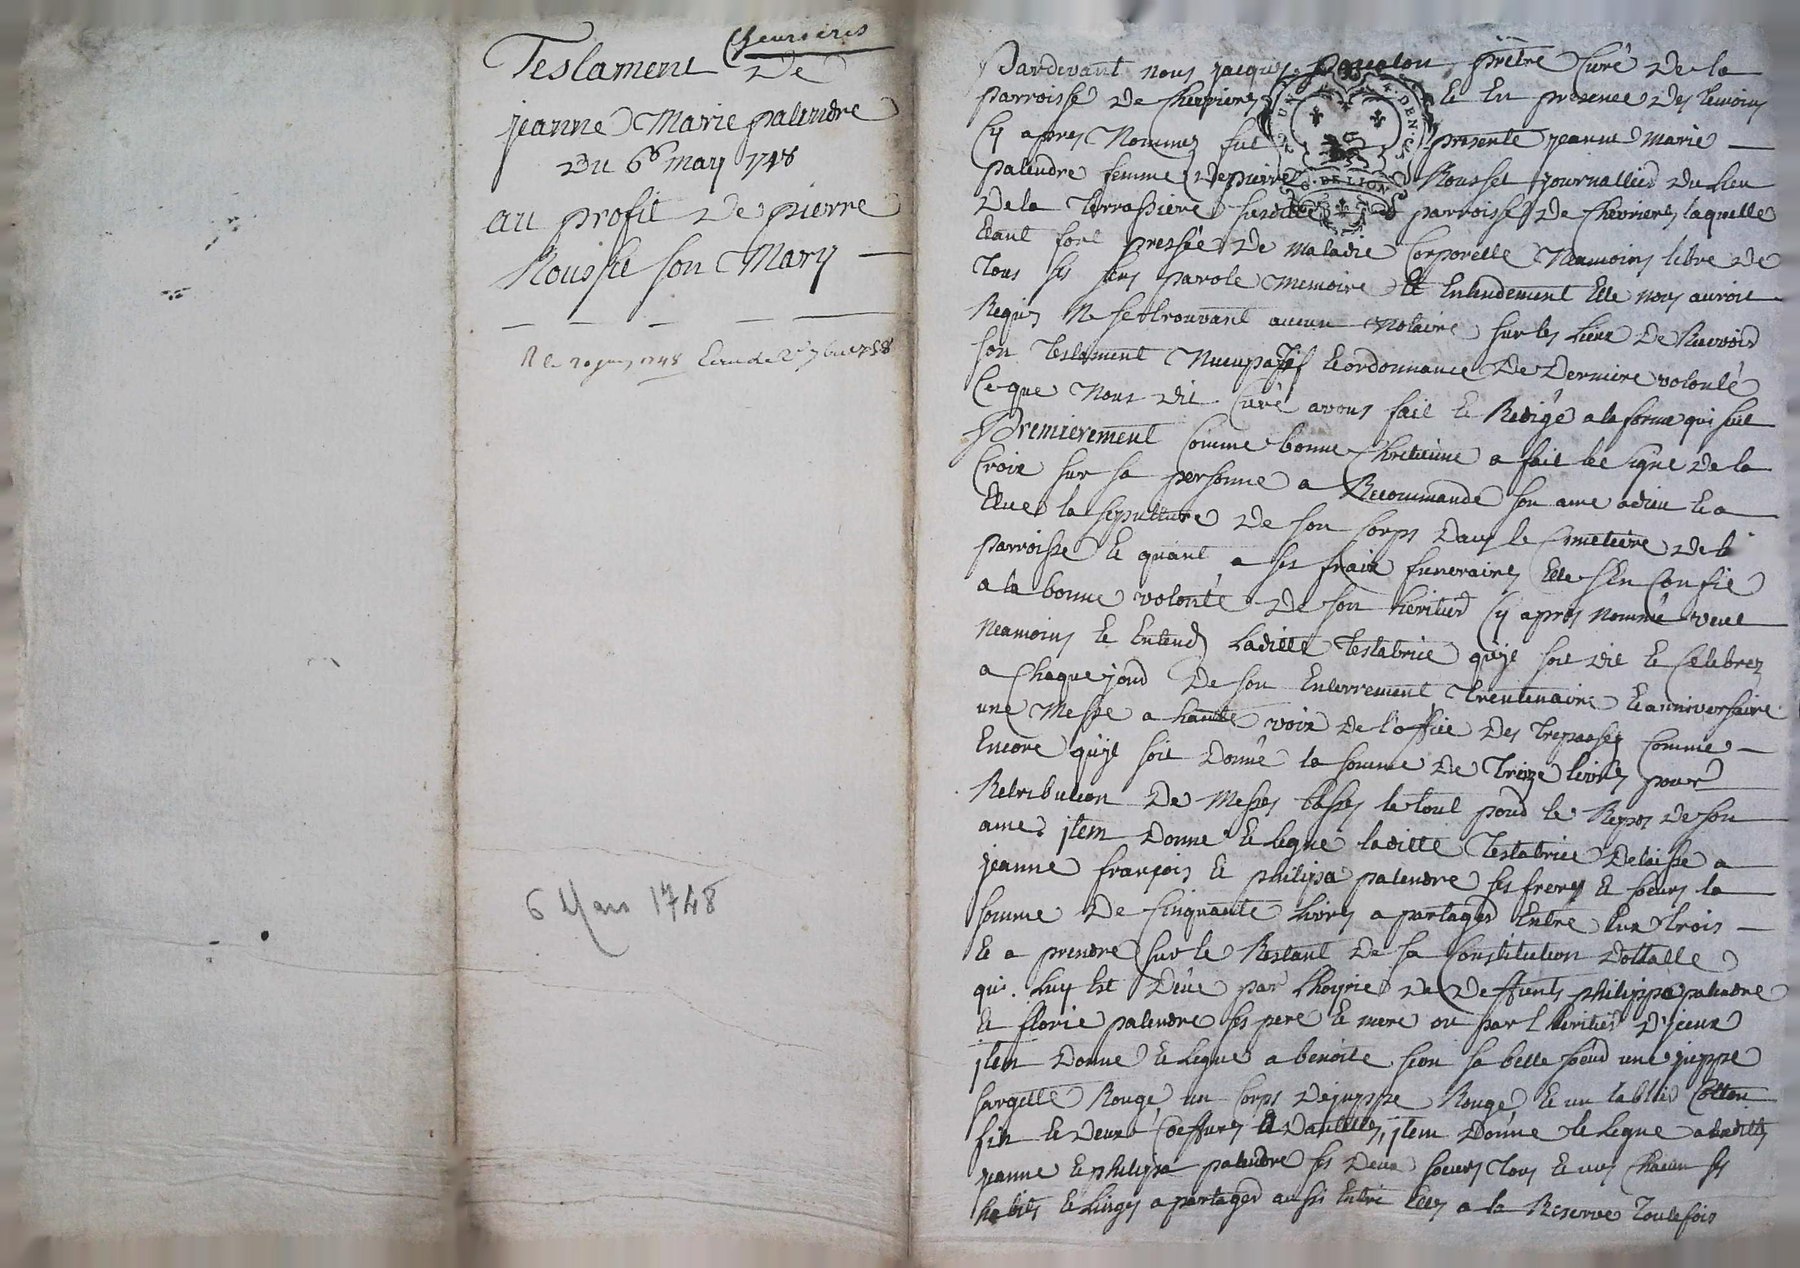 Chevrieres
Testament De
jeanne Marie palendre
Du 6e may 1748
au profit De pierre
Rousset son Mary
R le 20 juin 1748
6 Mars 1748
Pardevant nous jacques prêtre Curé De la
parroisse De Chevrieres Et En presence Des temoins
Cy apres Nommes fut presente jeanne Marie
palendre femme De pierre Rousset journallier du Lieu
De la Terrassiere susditte parroisse De Chevrieres laquelle
Etant fort pressée De maladie Corporelle Neamoins libre De
tous ses sens parole memoire Et Entendement Elle nous auroit
Requis Ne se trouvant aucun Notaire sur les Lieux De Recevoir
son Testament Nuncupatif Et ordonnance De Derniere volonté
Ce que Nous dit Curé avons fait Et Redigé a la forme qui suit
Premierement Comme bonne Chretienne a fait le Signe De la
Croix sur sa personne a Recommandé son ame a dieu Et a
Elue la sepulture De son Corps Dans le Cimetiere De la
parroisse Et quant a ses fraix funeraires Elle s'En Confie
a la bonne volonté De son heritier Cy apres nommé veut
Neamoins Et Entend Laditte Testatrice qu'jl soit dit Et Celebrez
a Chaque jour De son Enterrement Trentenaire Et anniversaire
une Messe a haute voix De l'office Des Trepassez Comme
Encore qu'jl soit Donné la somme De treize livres pour
Retribution De Messes basses le tout pour le Repos De son
ame. jtem Donne Et Legue laditte Testatrice Delaisse a
jeanne françois Et philipa palendre ses freres Et soeurs la
somme De Cinquante Livres a partager Entre Eux trois
Et a prendre sur le Restant De sa Constitution Dottalle
qui Luy Est Deüe par Lhoyrie De Deffunts philippe palendre
Et florie palendre ses pere Et mere ou par l'heritier D'jceux
jtem Donne Et Legue a benoite sion sa belle soeur une juppe
sargette Rouge un Corps De juppe Rouge Et un tablier Cotton
fin Et Deux Coeffures Et Dantelles, jtem Donne Et Legue a laditte
jeanne Et philipa palendre ses Deux soeurs tous Et uns Chacun ses
habits Et Linges a partager aussi Entre Elles a la Reserve Toutefois